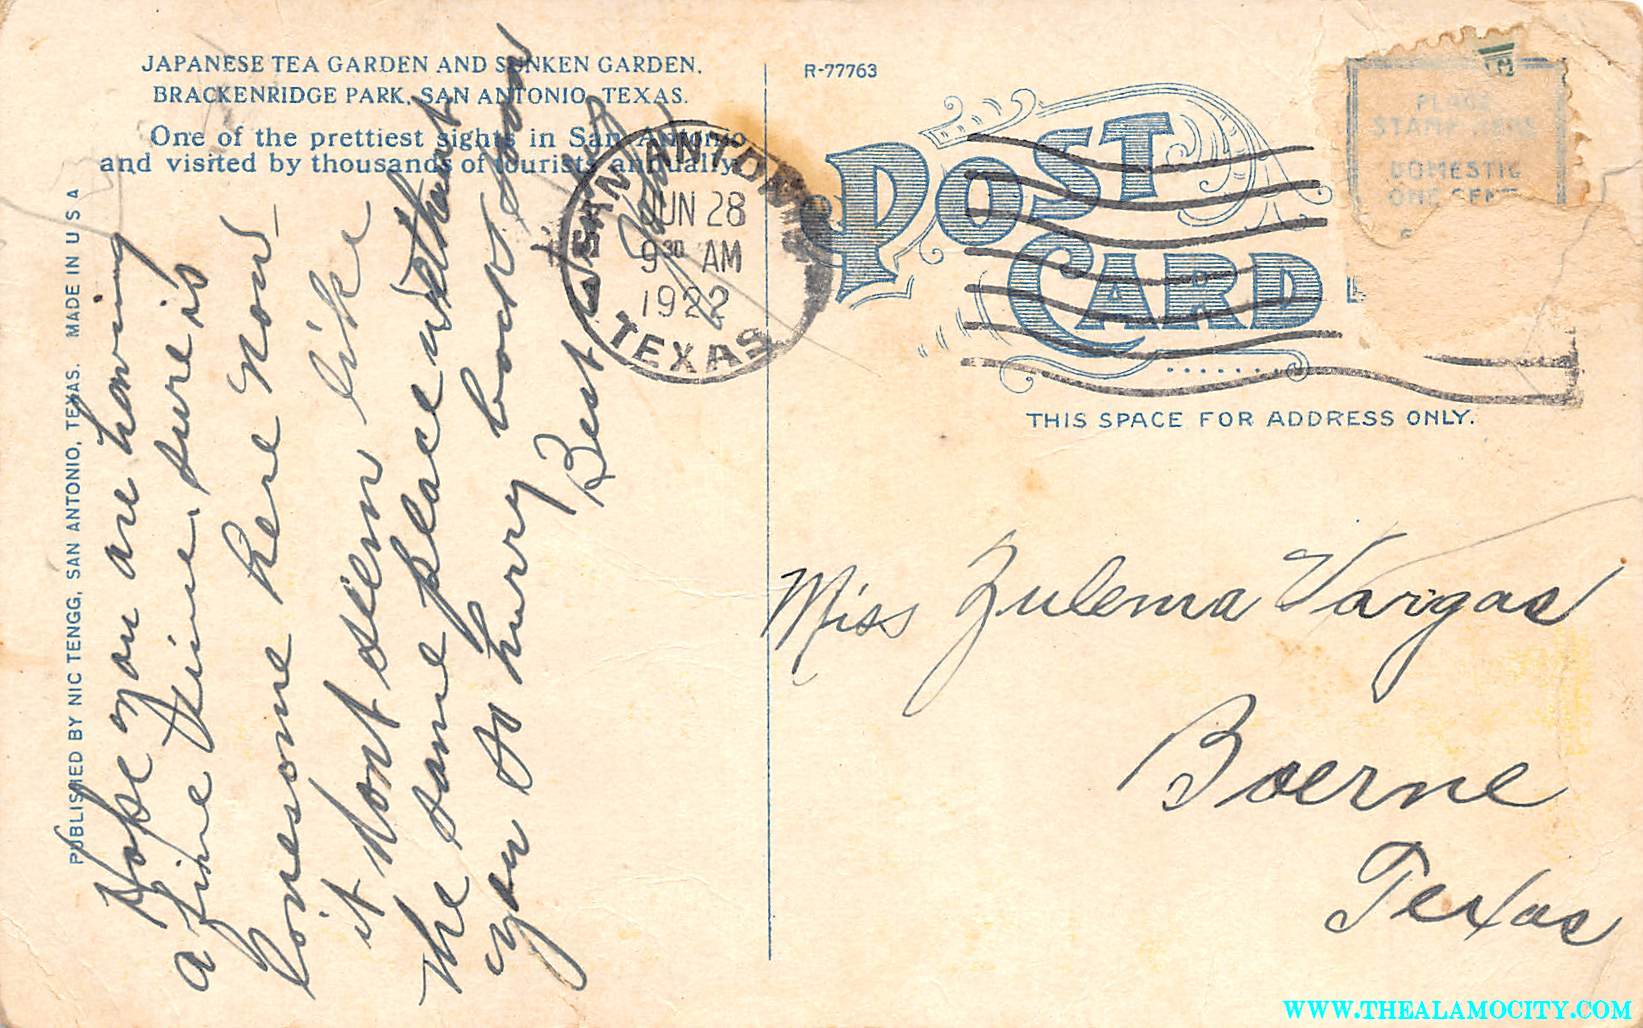 JAPANESE TEA GARDEN AND SUNKEN GARDEN,
BRACKENRIDGE PARK, SAN ANTONIO, TEXAS.
One of the prettiest sights in San Antonio
and visited by thousands of tourists annually.
PUBLISHED BY NIC TENGG, SAN ANTONIO, TEXAS. MADE IN U S A
Hope you are having
a fine time. sure is
lonesome here now
it dont seem like
the same place without
you so hurry back soon
Best
SAN ANTONIO
JUN 28
9 30 AM
1922
TEXAS
R-77763
POST
CARD
PLACE
STAMP HERE
DOMESTIC
ONE CENT
THIS SPACE FOR ADDRESS ONLY.
Miss Zulema Vargas
Boerne
Texas
WWW.THEALAMOCITY.COM